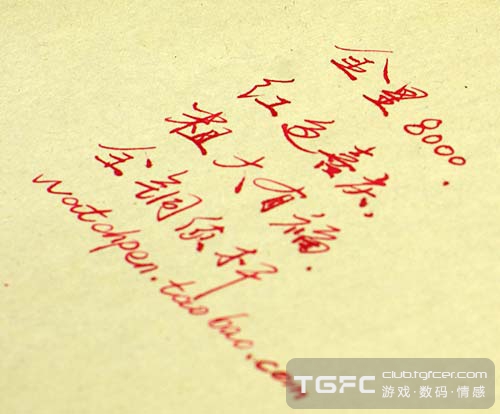 金星8000.
红色喜庆、
粗大有福.
全铜做杆
watchpen.taobao.com
TGFC club.tgfcer.com
游戏·数码·情感